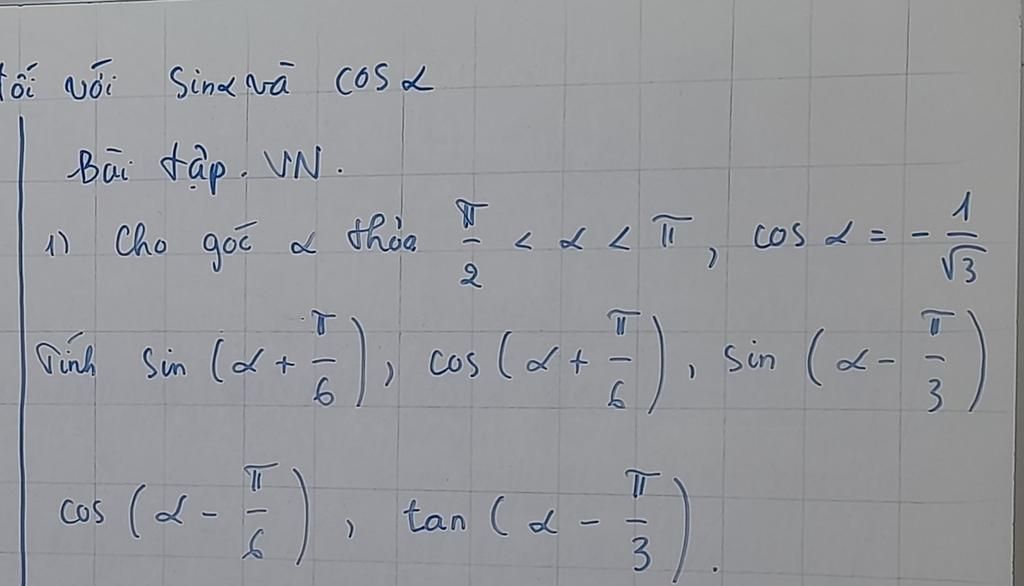 tối với sinα và cos α
Bài tập. VN.
1) Cho góc α thỏa π/2 < α < π, cos α = - 1/√3
Tính sin (α + π/6), cos (α + π/6), sin (α - π/3)
cos (α - π/6), tan (α - π/3).